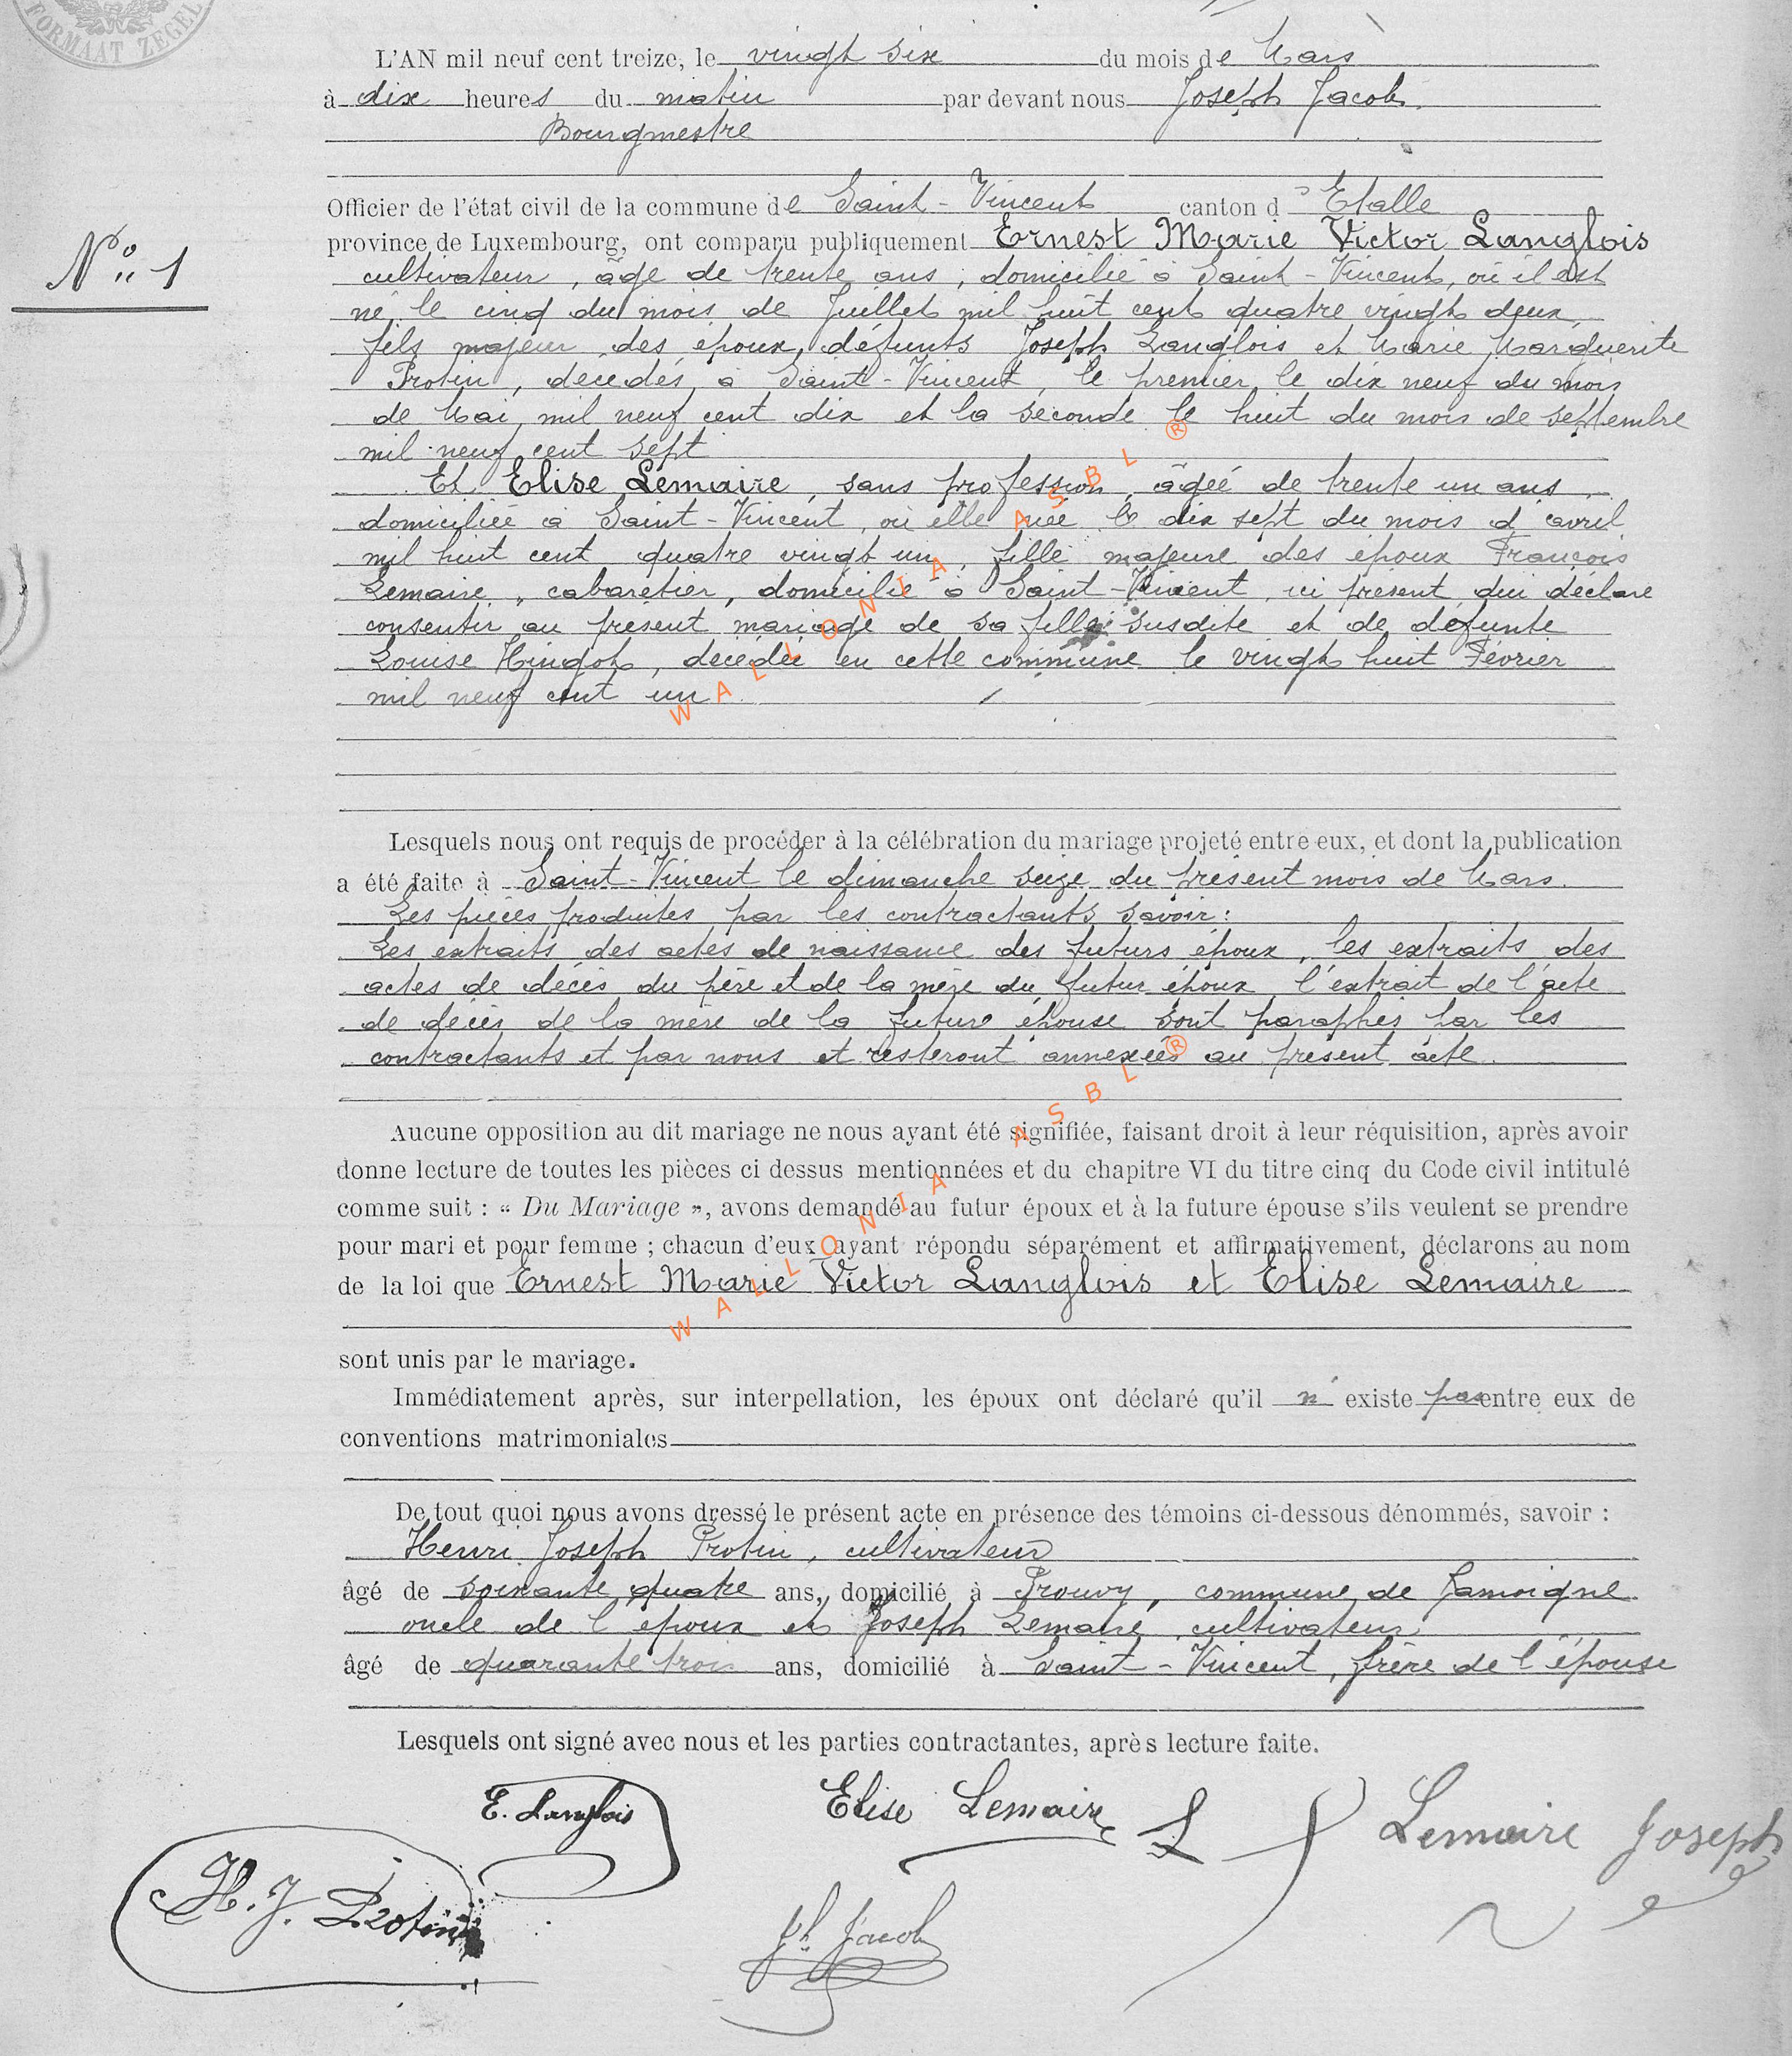 FORMAAT ZEGEL
L'AN mil neuf cent treize, le vingt six du mois de Mars
à dix heures du matin par devant nous Joseph Jacob
Bourgmestre
Officier de l'état civil de la commune de Saint-Vincent canton d'Etalle
province de Luxembourg, ont comparu publiquement Ernest Marie Victor Langlois
N° 1
cultivateur, âgé de trente ans, domicilié à Saint-Vincent, où il est
né le cinq du mois de Juillet mil huit cent quatre vingt deux,
fils majeur des époux défunts Joseph Langlois et Marie Marguerite
Protin, décédés à Saint-Vincent, le premier le dix neuf du mois
de Mai mil neuf cent dix et la seconde le huit du mois de septembre
mil neuf cent sept
Et Elise Lemaire, sans profession, âgée de trente un ans,
domiciliée à Saint-Vincent, où elle née le dix sept du mois d'avril
mil huit cent quatre vingt un, fille majeure des époux François
Lemaire, cabaretier, domicilié à Saint-Vincent, ici présent qui déclare
consentir au présent mariage de sa fille susdite et de défunte
Louise Hingot, décédée en cette commune le vingt huit Février
mil neuf cent un
Lesquels nous ont requis de procéder à la célébration du mariage projeté entre eux, et dont la publication
a été faite à Saint-Vincent le dimanche seize du présent mois de Mars.
Les pièces produites par les contractants savoir:
Les extraits des actes de naissance des futurs époux, les extraits des
actes de décès du père et de la mère du futur époux, l'extrait de l'acte
de décès de la mère de la future épouse sont paraphés par les
contractants et par nous et resteront annexées au présent acte.
Aucune opposition au dit mariage ne nous ayant été signifiée, faisant droit à leur réquisition, après avoir
donne lecture de toutes les pièces ci dessus mentionnées et du chapitre VI du titre cinq du Code civil intitulé
comme suit : « Du Mariage », avons demandé au futur époux et à la future épouse s'ils veulent se prendre
pour mari et pour femme ; chacun d'eux ayant répondu séparément et affirmativement, déclarons au nom
de la loi que Ernest Marie Victor Langlois et Elise Lemaire
sont unis par le mariage.
Immédiatement après, sur interpellation, les époux ont déclaré qu'il n' existe pas entre eux de
conventions matrimoniales
De tout quoi nous avons dressé le présent acte en présence des témoins ci-dessous dénommés, savoir :
Henri Joseph Protin, cultivateur
âgé de soixante quatre ans, domicilié à Prouvy, commune de Jamoigne
oncle de l'époux et Joseph Lemaire, cultivateur,
âgé de quarante trois ans, domicilié à Saint-Vincent, frère de l'épouse
Lesquels ont signé avec nous et les parties contractantes, après lecture faite.
E. Langlois
Elise Lemaire
L F
Lemaire Joseph
H. J. Protin
Jh Jacob
WALLONIA ASBL ®
WALLONIA ASBL ®